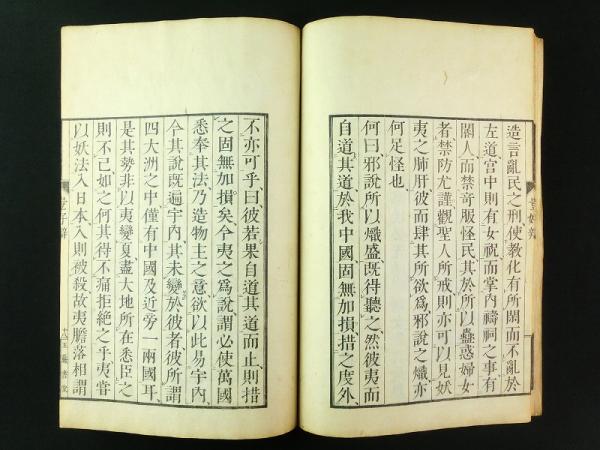 造言亂民之刑使教化有所閑而不亂於
左道宮中則有女祝而掌內禱祠之事有
閽人而禁奇服怪民其於所以蠱惑婦女
者禁防尤謹觀聖人所戒則亦可以見妖
夷之肺肝彼而肆其所欲爲邪說之熾亦
何足怪也
何曰邪說所以熾盛既得聽之然彼夷而
自道其道於我中國固無加損措之度外
不亦可乎曰彼若果自道其道而止則措
之固無加損矣今夷之爲說謂必使萬國
悉奉其法乃造物主之意欲以此易宇內
今其說既遍宇內其未變於彼者彼所謂
四大洲之中僅有中國及近旁一兩國耳
是其勢非以夷變夏盡大地所在悉臣之
則不已如之何其得不痛拒絶之乎夷嘗
以妖法入日本入則被殺故夷膽落相謂